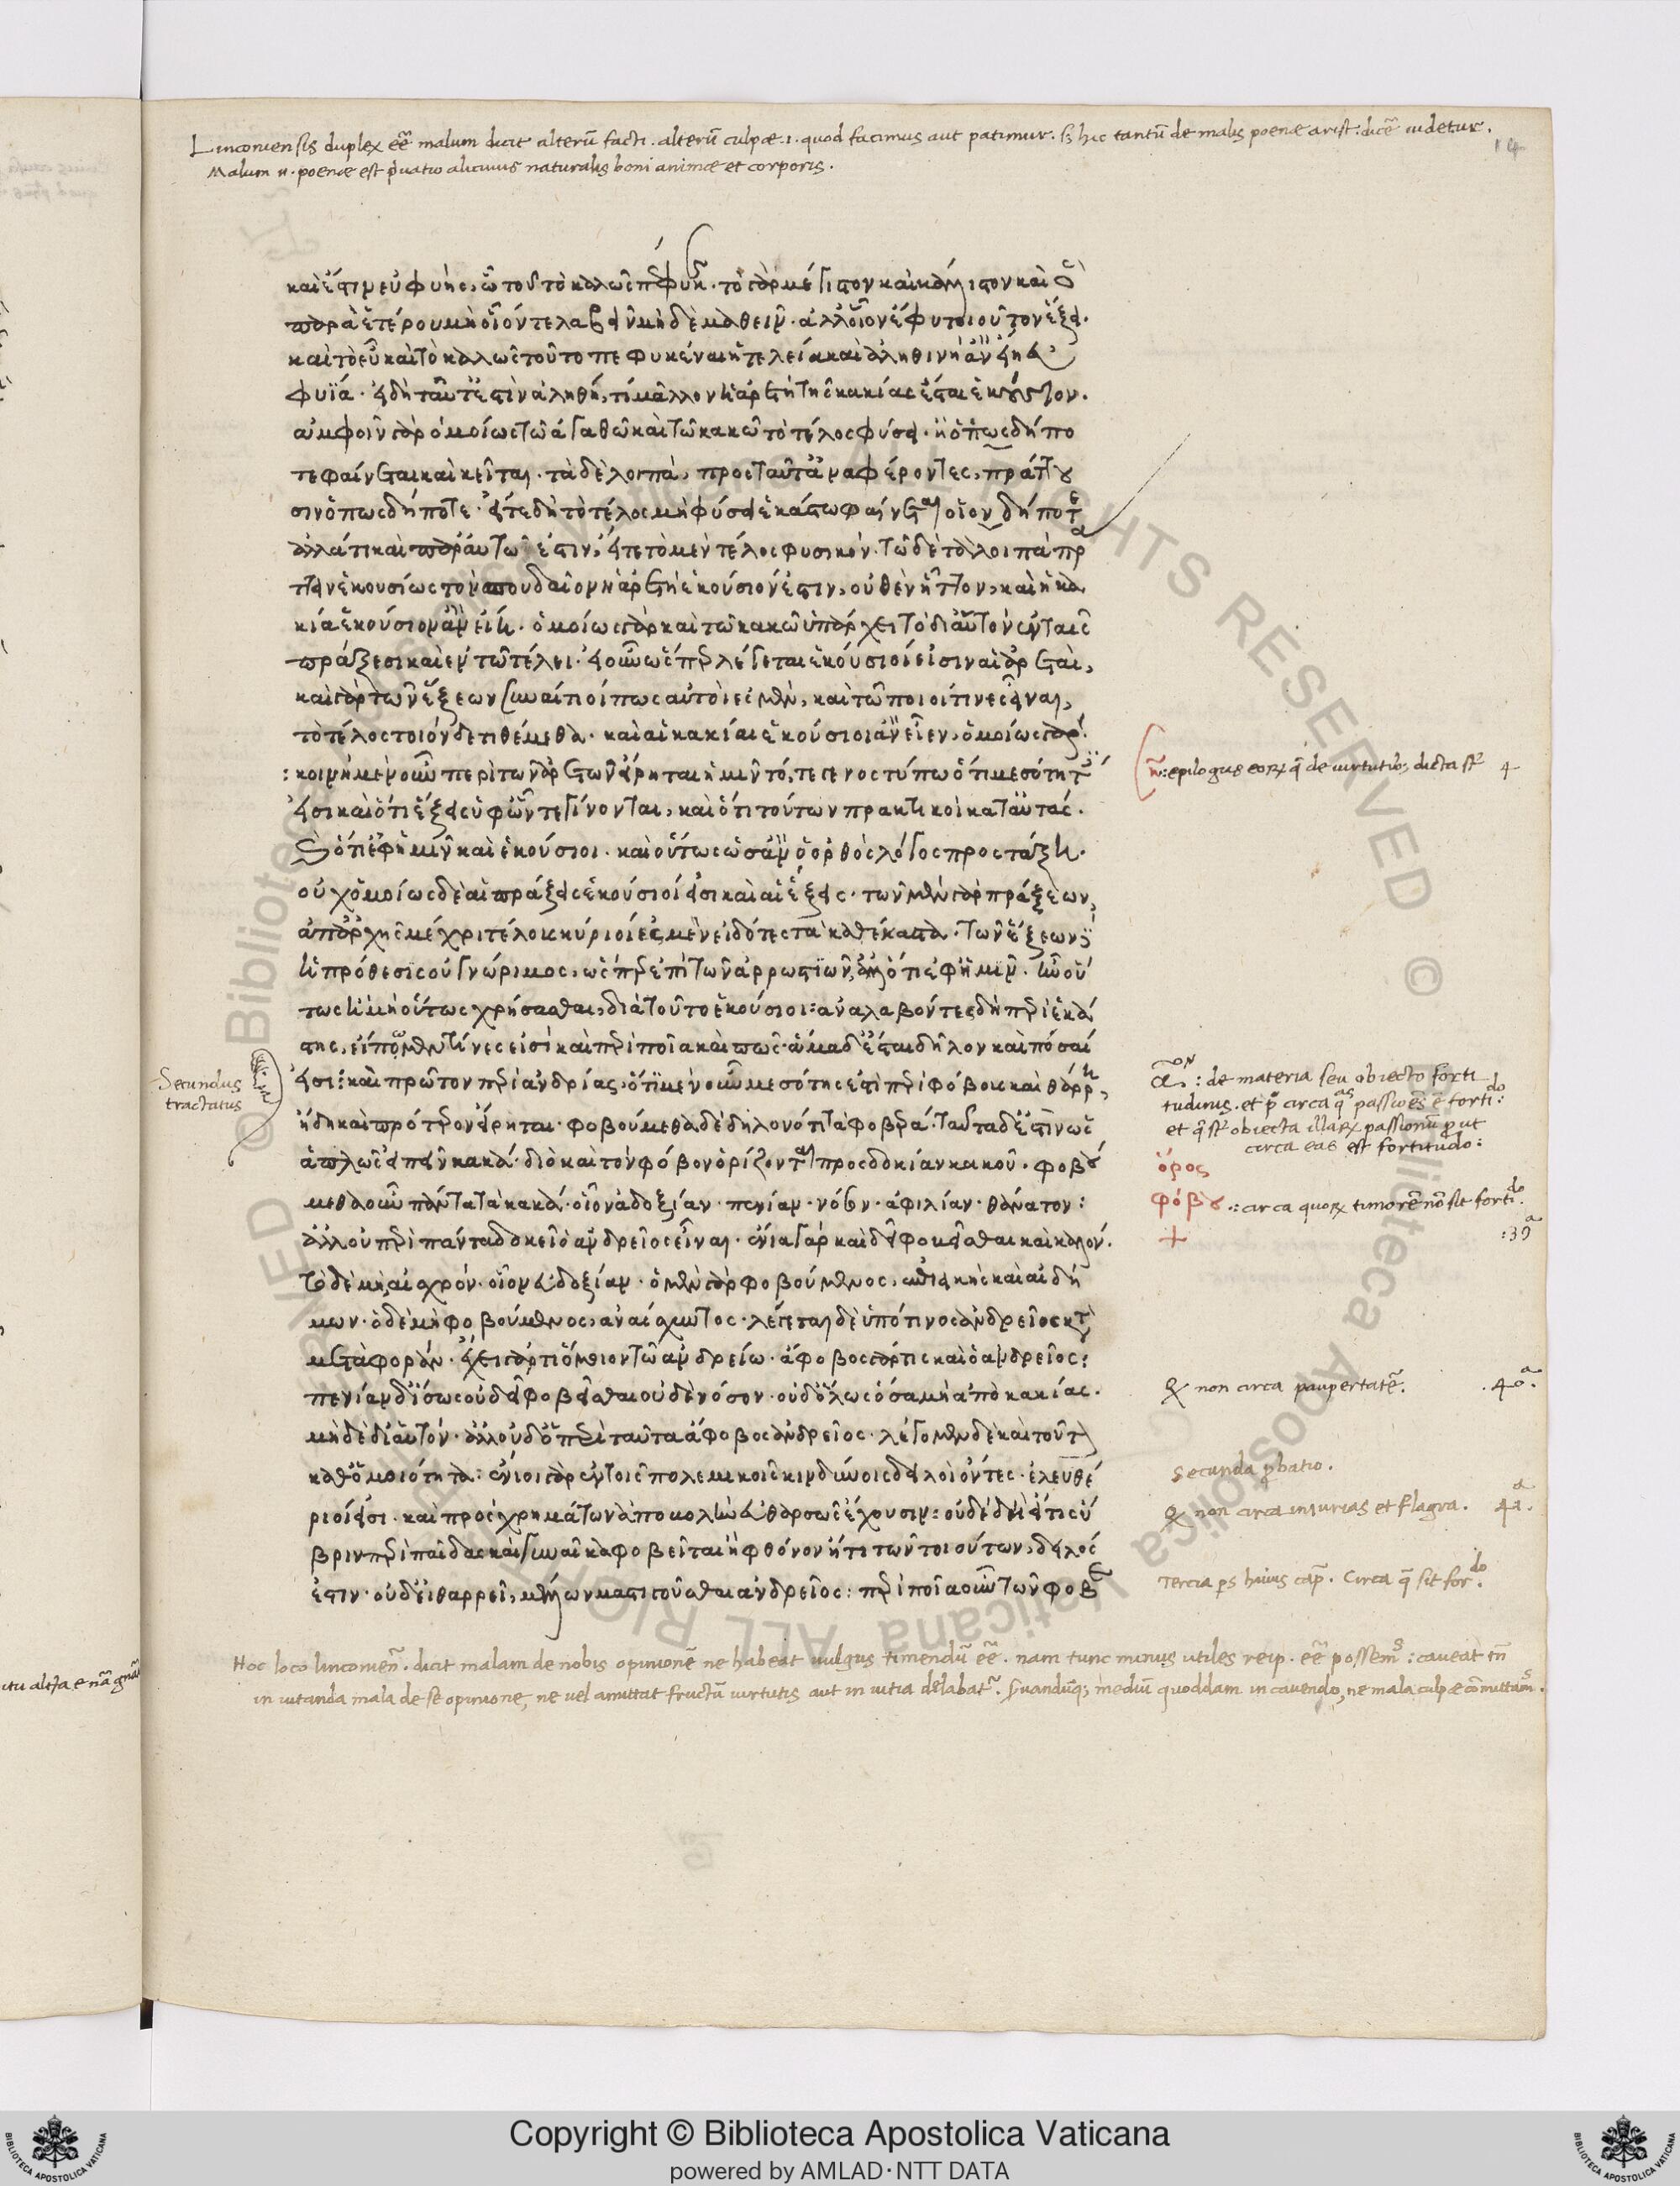 Linconiensis duplex eē malum dicit alterū facti. alterū culpæ .i. quod facimus aut patimur. sȝ hic tantū de malis poenæ arist: dicē uidetur.
14
Malum n. poenæ est pͥuatio alicuius naturalis boni animæ et corporis.
καὶ ἔστιν εὐφυὴς, ᾧ τοῦτο καλῶς πέφυκ. τὸ γὰρ μέγιστον καὶ κάλλιστον καὶ ὃ
παρὰ ἑτέρου μὴ οἷόν τε λαβεῖν μηδὲ μαθεῖν. ἀλλ' οἷον ἔφυ τοιοῦτον ἕξει.
καὶ τὸ εὖ καὶ τὸ καλῶς τοῦτο πεφυκέναι ἡ τελεία καὶ ἀληθινὴ ἂν εἴη εὐ
φυΐα. εἰ δὴ ταῦτ' ἐστὶν ἀληθῆ, τί μᾶλλον ἡ ἀρετὴ τῆς κακίας ἔσται ἑκούσιον.
ἀμφοῖν γὰρ ὁμοίως τῷ ἀγαθῷ καὶ τῷ κακῷ τὸ τέλος φύσει. ἢ ὅπως δή πο
τε φαίνεται καὶ κεῖται. τὰ δὲ λοιπὰ, πρὸς ταῦτ' ἀναφέροντες, πράττου
σιν ὅπως δήποτε. εἴτε δὴ τὸ τέλος μὴ φύσει ἑκάστῳ φαίνεται οἷον δήποτε
ἀλλά τι καὶ παρ' αὑτῷ ἐστιν, εἴτε τὸ μὲν τέλος φυσικόν. τῷ δὲ τὰ λοιπὰ πρά
ττειν ἑκουσίως τὸν σπουδαῖον ἡ ἀρετὴ ἑκούσιόν ἐστιν, οὐθὲν ἧττον, καὶ ἡ κα
κία ἑκούσιον ἂν εἴη. ὁμοίως γὰρ καὶ τῷ κακῷ ὑπάρχει τὸ δι' αὑτὸν ἐν ταῖς
πράξεσι καὶ ἐν τῷ τέλει. εἰ οὖν ὥσπερ λέγεται ἑκούσιοί εἰσιν αἱ ἀρεταὶ,
καὶ γὰρ τῶν ἕξεων συναίτιοί πως αὐτοὶ ἐσμὲν, καὶ τῷ ποιοί τινες εἶναι,
τὸ τέλος τοιόνδε τιθέμεθα. καὶ αἱ κακίαι ἑκούσιοι ἂν εἶεν, ὁμοίως γάρ.
: κοινῇ μὲν οὖν περὶ τῶν ἀρετῶν εἴρηται ἡμῖν τό, τε γένος τύπῳ ὅτι μεσότητές
εἰσι καὶ ὅτι ἕξεις ὑφ' ὧν τε γίνονται, καὶ ὅτι τούτων πρακτικοὶ κατ' αὐτάς.
ὅτι ἐφ' ἡμῖν καὶ ἑκούσιοι. καὶ οὕτως ὡς ἂν ὁ ὀρθὸς λόγος προστάξῃ.
οὐχ ὁμοίως δὲ αἱ πράξεις ἑκούσιοί εἰσι καὶ αἱ ἕξεις. τῶν μὲν γὰρ πράξεων,
ἀπ' ἀρχῆς μέχρι τέλους κύριοί ἐσμεν εἰδότες τὰ καθ' ἕκαστα. τῶν ἕξεων δὲ
ἡ πρόθεσις οὐ γνώριμος, ὥσπερ ἐπὶ τῶν ἀρρωστιῶν, ἀλλ' ὅτι ἐφ' ἡμῖν. ἦν οὕ
τως ἢ μὴ οὕτως χρήσασθαι, διὰ τοῦτο ἑκούσιοι: ἀναλαβόντες δὴ περὶ ἑκά
στης, εἴπωμεν τίνες εἰσὶ καὶ περὶ ποῖα καὶ πῶς. ἅμα δ' ἔσται δῆλον καὶ πόσαι
εἰσί: καὶ πρῶτον περὶ ἀνδρίας. ὅτι μὲν οὖν μεσότης ἐστὶ περὶ φόβους καὶ θάρρη,
ἤδη καὶ πρότερον εἴρηται. φοβούμεθα δὲ δηλονότι τὰ φοβερά. ταῦτα δ' ἐστὶν ὡς
ἁπλῶς εἰπεῖν κακά. διὸ καὶ τὸν φόβον ὁρίζονται προσδοκίαν κακοῦ. φοβού
μεθα οὖν πάντα τὰ κακά. οἷον ἀδοξίαν. πενίαν. νόσον. ἀφιλίαν. θάνατον:
ἀλλ' οὐ περὶ πάντα δοκεῖ ὁ ἀνδρεῖος εἶναι. ἔνια γὰρ καὶ δεῖ φοβεῖσθαι καὶ καλόν.
τὸ δὲ μὴ, αἰσχρόν. οἷον ἀδοξίαν. ὁ μὲν γὰρ φοβούμενος, ἐπιεικὴς καὶ αἰδή
μων. ὁ δὲ μὴ φοβούμενος, ἀναίσχυντος. λέγεται δὲ ὑπό τινος ἀνδρεῖος κατὰ
μεταφοράν. ἔχει γάρ τι ὅμοιον τῷ ἀνδρείῳ. ἄφοβος γάρ τις καὶ ὁ ἀνδρεῖος:
πενίαν δ' ἴσως οὐ δεῖ φοβεῖσθαι οὐδὲ νόσον. οὐδ' ὅλως ὅσα μὴ ἀπὸ κακίας.
μὴ δὲ δι' αὑτόν. ἀλλ' οὐδ' ὁ περὶ ταῦτα ἄφοβος ἀνδρεῖος. λέγομεν δὲ καὶ τοῦτον
καθ' ὁμοιότητα: ἔνιοι γὰρ ἐν τοῖς πολεμικοῖς κινδύνοις δειλοὶ ὄντες. ἐλευθέ
ριοί εἰσι. καὶ πρὸς χρημάτων ἀποβολὴν εὐθαρσῶς ἔχουσιν: οὐδὲ δὴ εἴ τις ὕ
βριν περὶ παῖδας καὶ γυναῖκα φοβεῖται ἢ φθόνον ἤ τι τῶν τοιούτων, δειλός
ἐστιν. οὐδ' εἰ θαρρεῖ, μέλλων μαστιγοῦσθαι ἀνδρεῖος: περὶ ποῖα οὖν τῶν φοβε
: epilogus eoꝝ q̄ de uirtutibꝰ dicta st̄ 4
Secundus
tractatus
: de materia seu obiecto forti
tudinis. et p̄ circa q̄s passiōes ē forti:do
et q̄ st̄ obiecta illaꝝ passionū prout
circa eas est fortitudo:
ὅρος
φόβου .: circa quoꝝ timorē nō sit fortido.
+ :39a
ꝝ non circa paupertatē. .40a.
secunda ꝓbatio.
ꝝ non circa iniurias et flagra. 41a.
Tercia ps huius cap. Circa q̄ sit fordo.
Hoc loco linconieñ. dicit malam de nobis opinionē ne habeat uulgus timendū eē. nam tunc minus utiles reip. eē possemꝰ: caueat tñ
in uitanda mala de se opinione, ne uel amittat fructū uirtutis aut in uitia delabatr̄. seruandūqȝ mediū quoddam in cauendo, ne mala culpæ cōmittamꝰ.
Copyright © Biblioteca Apostolica Vaticana
powered by AMLAD·NTT DATA